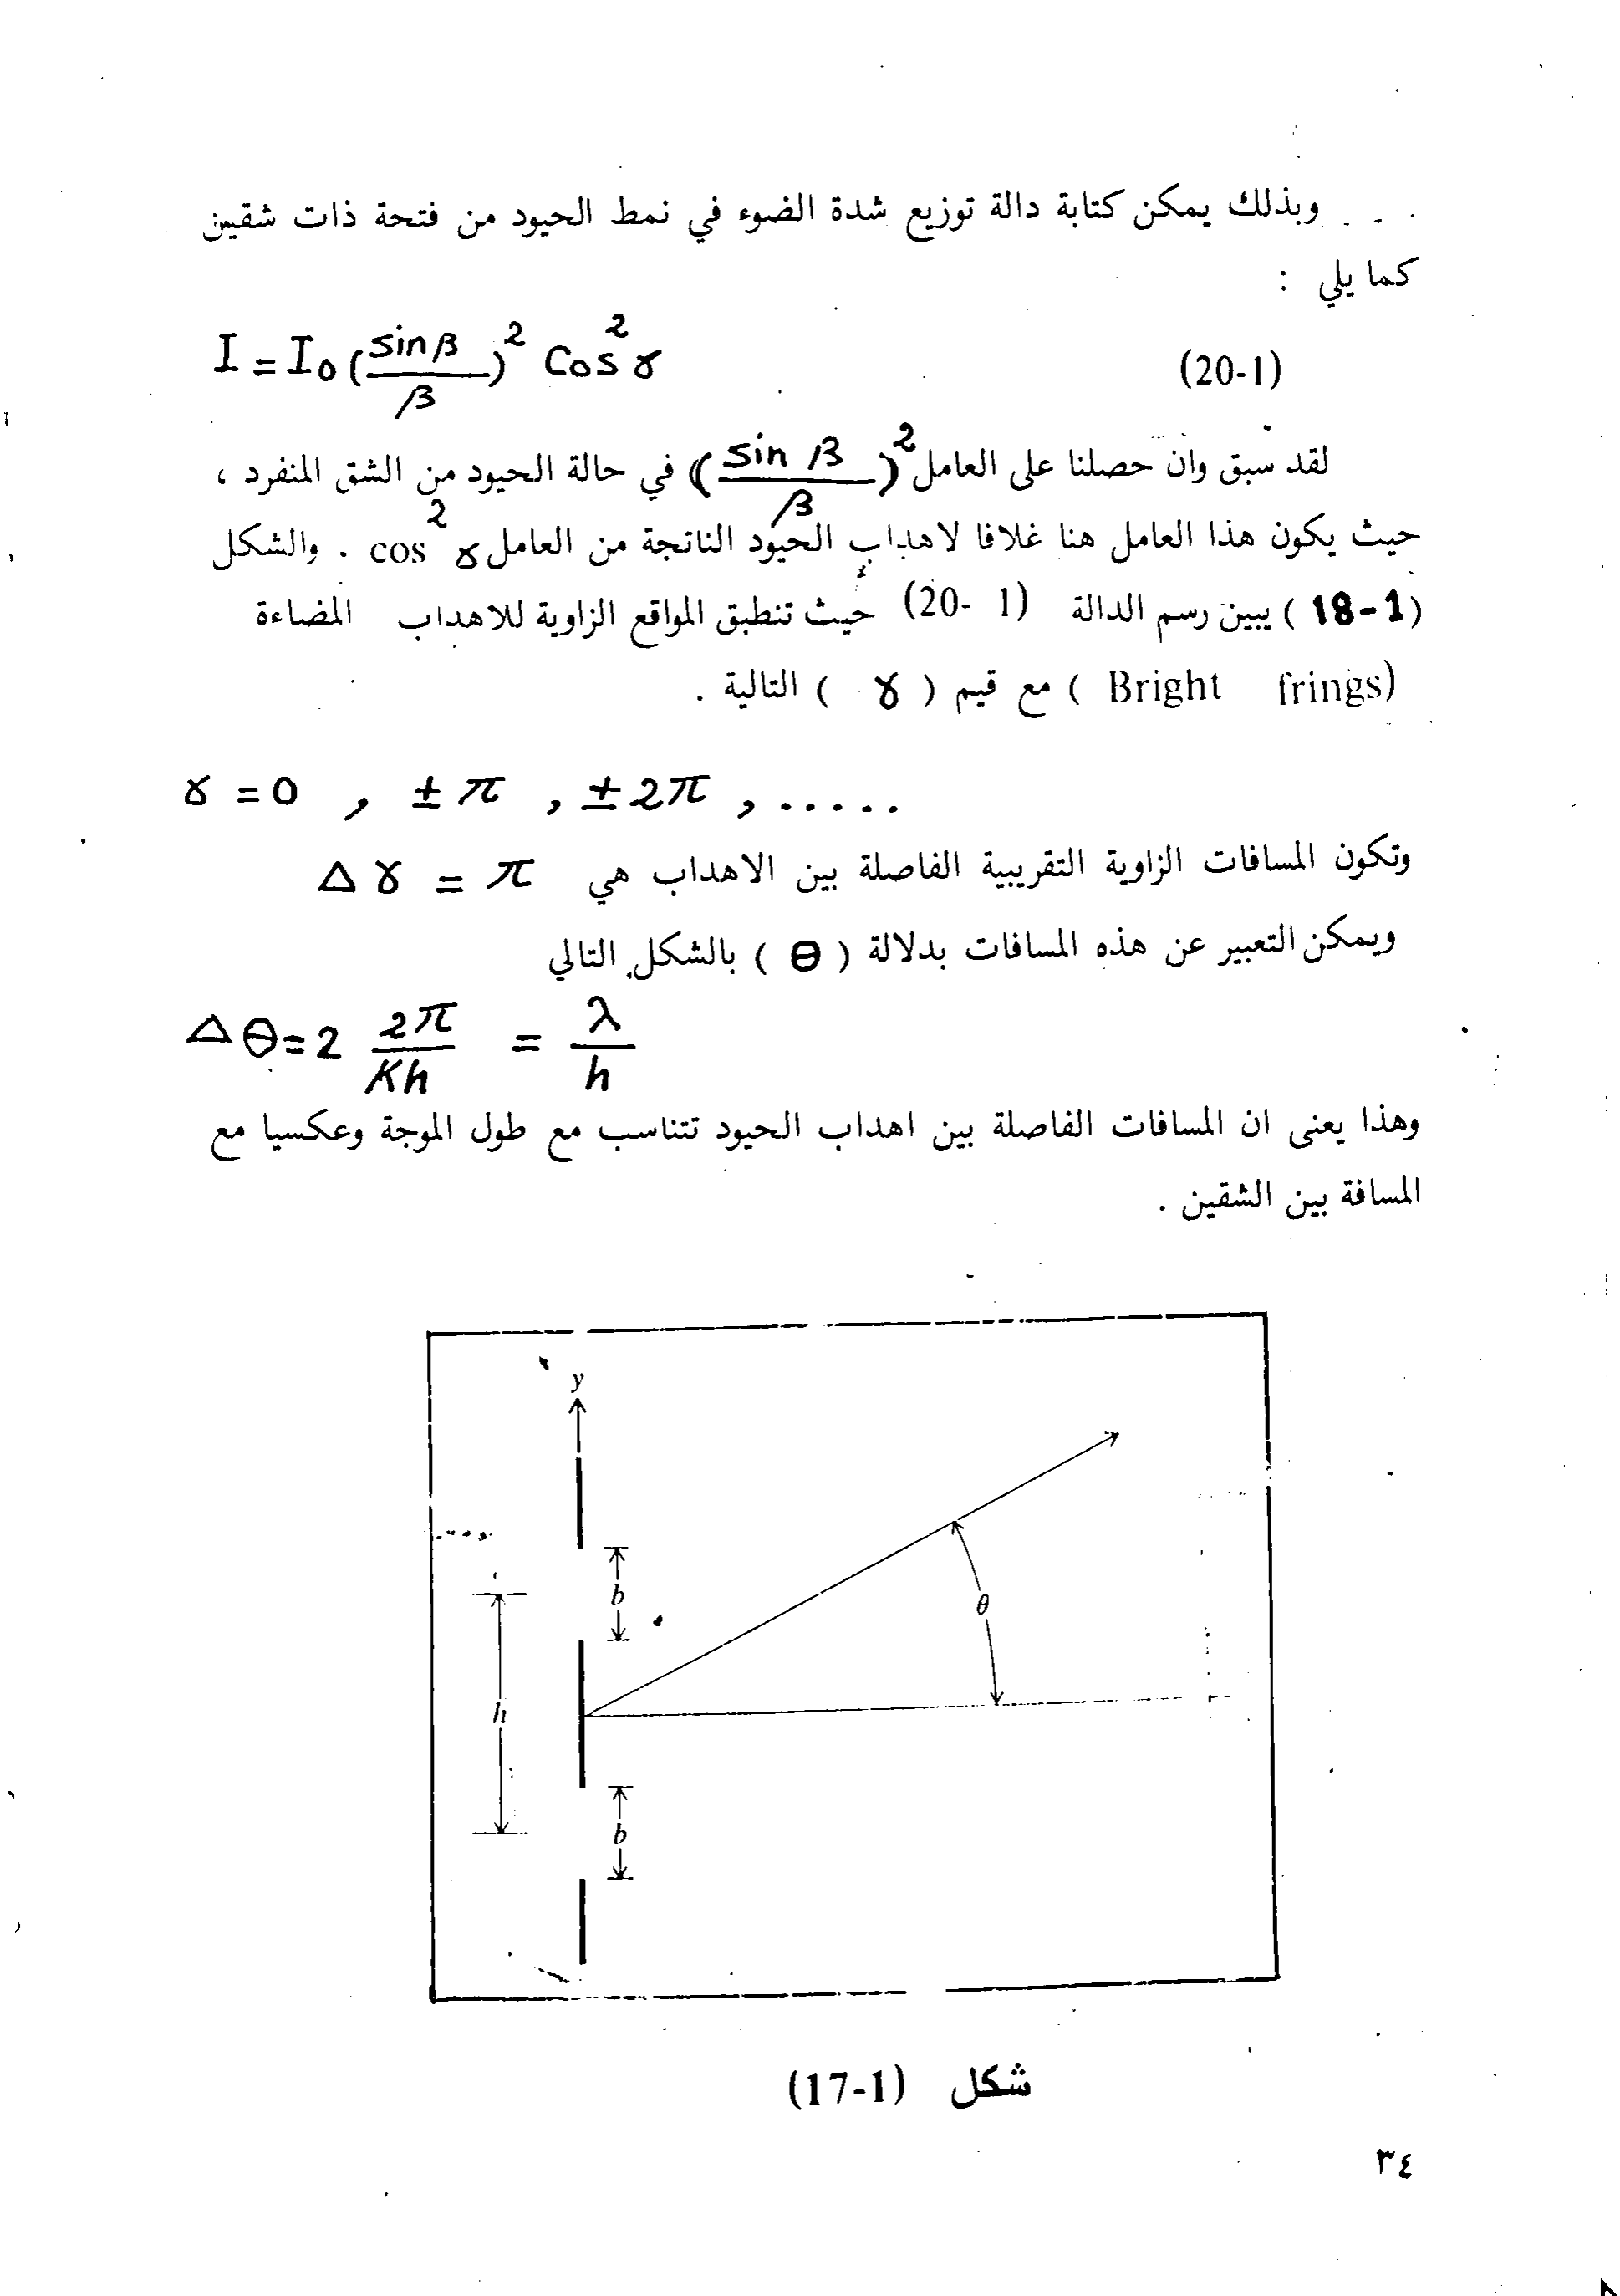 وبذلك يمكن كتابة دالة توزيع شدة الضوء في نمط الحيود من فتحة ذات شقين
كما يلي :
I = I0 (sin β / β)² Cos² γ (20-1)
لقد سبق وان حصلنا على العامل (sin β / β)² في حالة الحيود من الشق المنفرد ،
حيث يكون هذا العامل هنا غلافا لاهداب الحيود الناتجة من العامل cos² γ . والشكل
(18-1) يبين رسم الدالة (20- 1) حيث تنطبق المواقع الزاوية للاهداب المضاءة
(Bright frings) مع قيم ( γ ) التالية .
γ = 0 , ± π , ± 2π , .....
وتكون المسافات الزاوية التقريبية الفاصلة بين الاهداب هي Δ γ = π
ويمكن التعبير عن هذه المسافات بدلالة ( θ ) بالشكل التالي
Δ θ = 2 2π / Kh = λ / h
وهذا يعنى ان المسافات الفاصلة بين اهداب الحيود تتناسب مع طول الموجة وعكسيا مع
المسافة بين الشقين .
y
b
θ
h
b
شكل (17-1)
٣٤